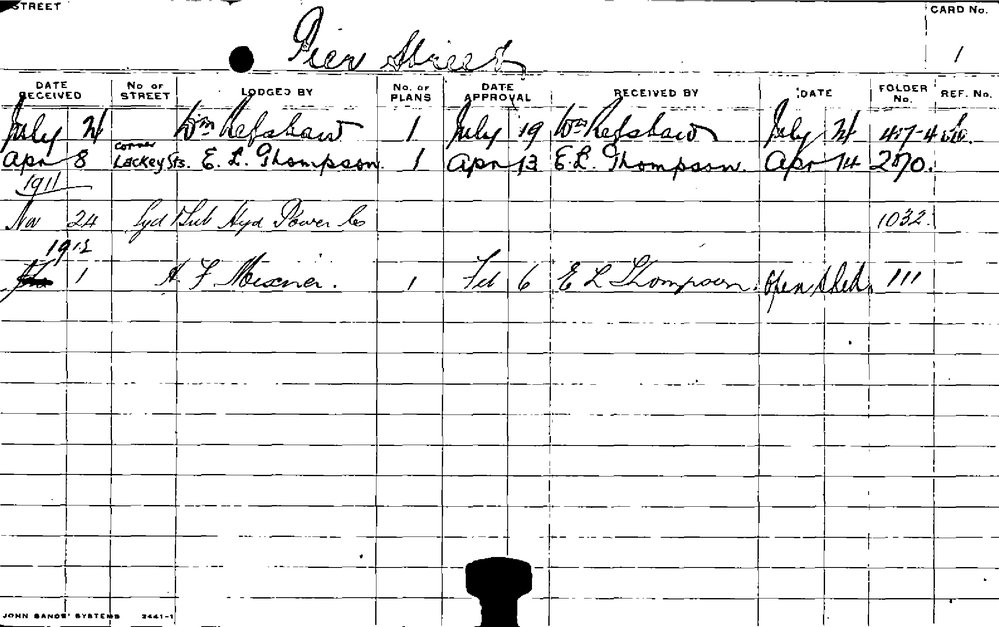 STREET Pier Street CARD No. 1
DATE RECEIVED No of STREET LODGED BY No. of PLANS DATE APPROVAL RECEIVED BY DATE FOLDER No. REF. No.
July Wm Refshaw 1 July 19 Wm Refshaw July
Apr 8 Corner Lackey Sts. E. L. Thompson. 1 Apr 13 E. L. Thompson. Apr 14 270.
1911
Nov 24 Syd & Sub Hyd Power Co 1032
1912
1 A. F. 1 Feb 6 E L Thompson. Open Shed. 111
JOHN SANDS' SYSTEMS 2441-1